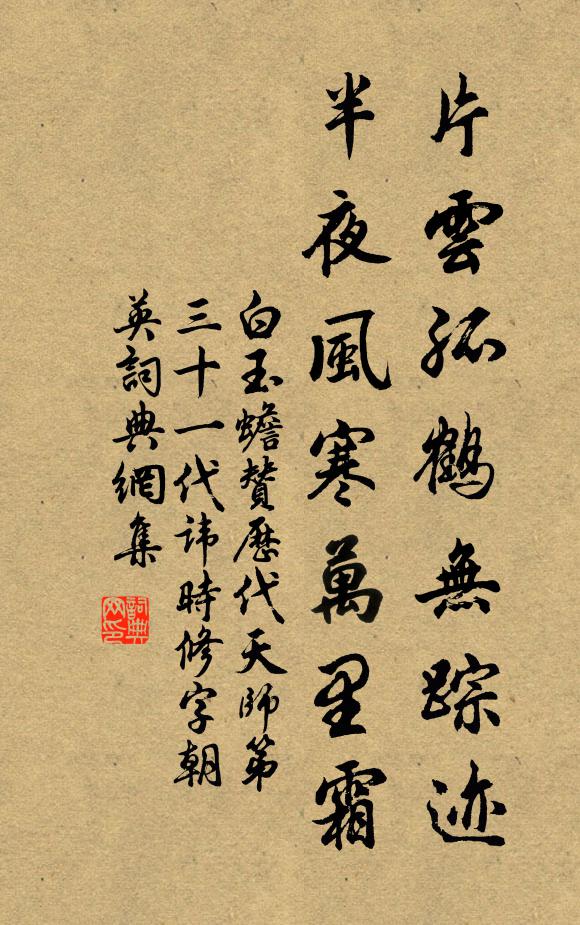 片雲孤鶴無踪迹
半夜風寒萬里霜
白玉蟾贊歷代天師第
三十一代諱時修字朝
英詞典網集
詞典
网印